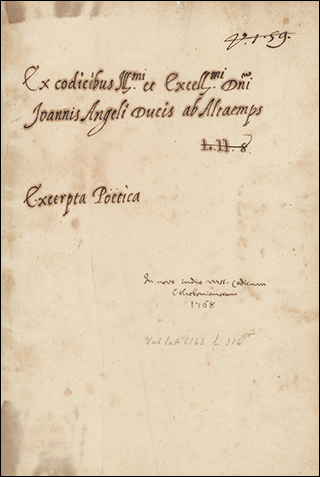 V.1.59.
Ex codicibus Ill.mi et Excell.mi Dñi
Joannis Angeli Ducis ab Altaemps
L.II.8
Excerpta Poetica
In novo indice Mss. Codicum
1768
Vat lat 6163 f. 316